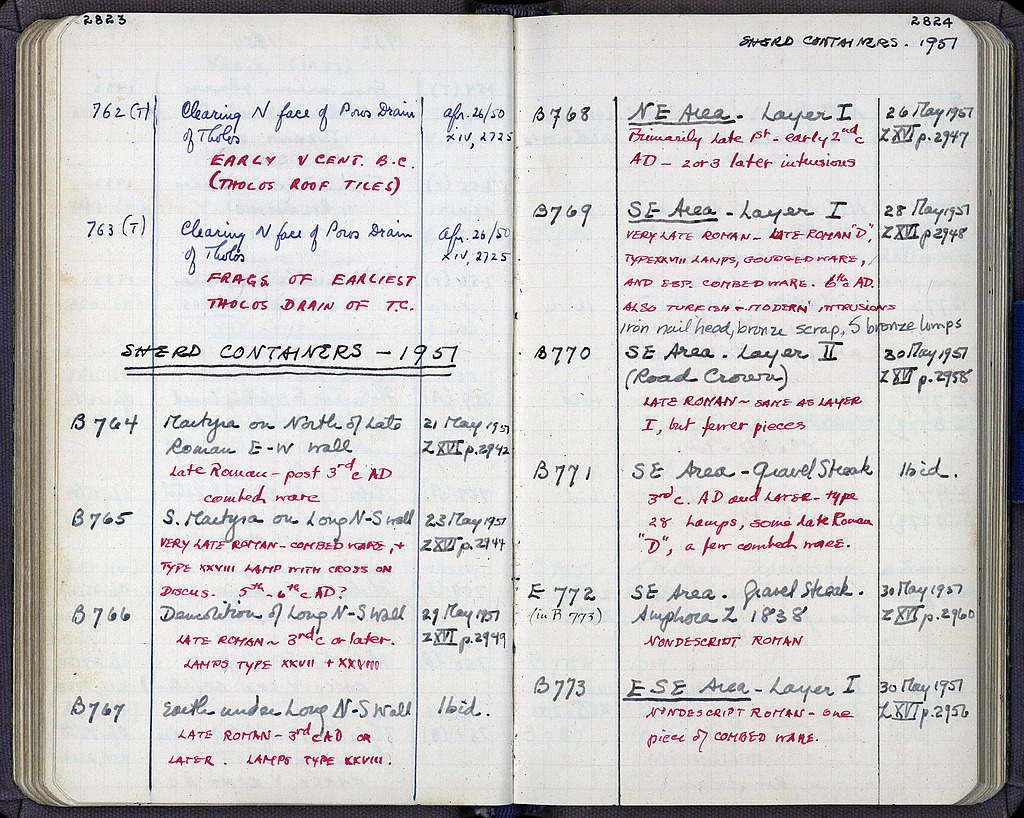 2823
762 (T) Clearing N face of Poros Drain apr. 26/50
of Tholos XIV, 2725
EARLY V CENT. B.C.
(THOLOS ROOF TILES)
763 (T) Clearing N face of Poros Drain apr. 26/50
of Tholos XIV, 2725
FRAGS OF EARLIEST
THOLOS DRAIN OF T.C.
SHERD CONTAINERS - 1951
B 764 Martyra on North of Late 21 May 1951
Roman E-W Wall Z XVI p.2942
Late Roman - post 3rd c AD
combed ware
B 765 S. Martyra on Long N-S Wall 23 May 1951
VERY LATE ROMAN - COMBED WARE, + Z XVI p.2944
TYPE XXVIII LAMP WITH CROSS ON
DISCUS. 5th - 6th c AD?
B 766 Demolition of Long N-S Wall 29 May 1951
LATE ROMAN ~ 3rd c or later. Z XVI p.2949
LAMPS TYPE XXVII + XXVIII
B 767 Earth under Long N-S Wall Ibid.
LATE ROMAN - 3rd c AD OR
LATER. LAMPS TYPE XXVIII.
2824
SHERD CONTAINERS. 1951
B768 NE Area - Layer I 26 May 1951
Primarily late 1st - early 2nd c Z XVI p.2947
AD - 2 or 3 later intrusions
B769 SE Area - Layer I 28 May 1951
VERY LATE ROMAN - LATE ROMAN "D", Z XVI p.2948
TYPE XXVIII LAMPS, GOUDGED WARE,
AND ESP. COMBED WARE. 6th c AD.
ALSO TURKISH + MODERN INTRUSIONS
iron nail head, bronze scrap, 5 bronze lumps
B770 SE Area. Layer II 30 May 1951
(Road Crown) Z XVI p.2958
LATE ROMAN ~ SAME AS LAYER
I, but fewer pieces
B771 SE Area - Gravel Streak Ibid.
3rd c. AD and LATER - type
28 Lamps, some Late Roman
"D", a few combed ware.
E 772 SE Area. Gravel Streak. 30 May 1951
(in B 773) Amphora Z 1838 Z XVI p.2960
NONDESCRIPT ROMAN
B773 ESE Area - Layer I 30 May 1951
NONDESCRIPT ROMAN - one Z XVI p.2956
piece of COMBED WARE.